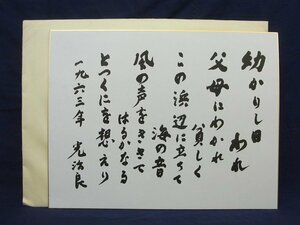 幼かりし日
われ
父母にわかれ
貧しく
この浜辺に立ちて
海の音
風の声をききて
はるかなる
とつくにを想えり
一九六三年 光治良